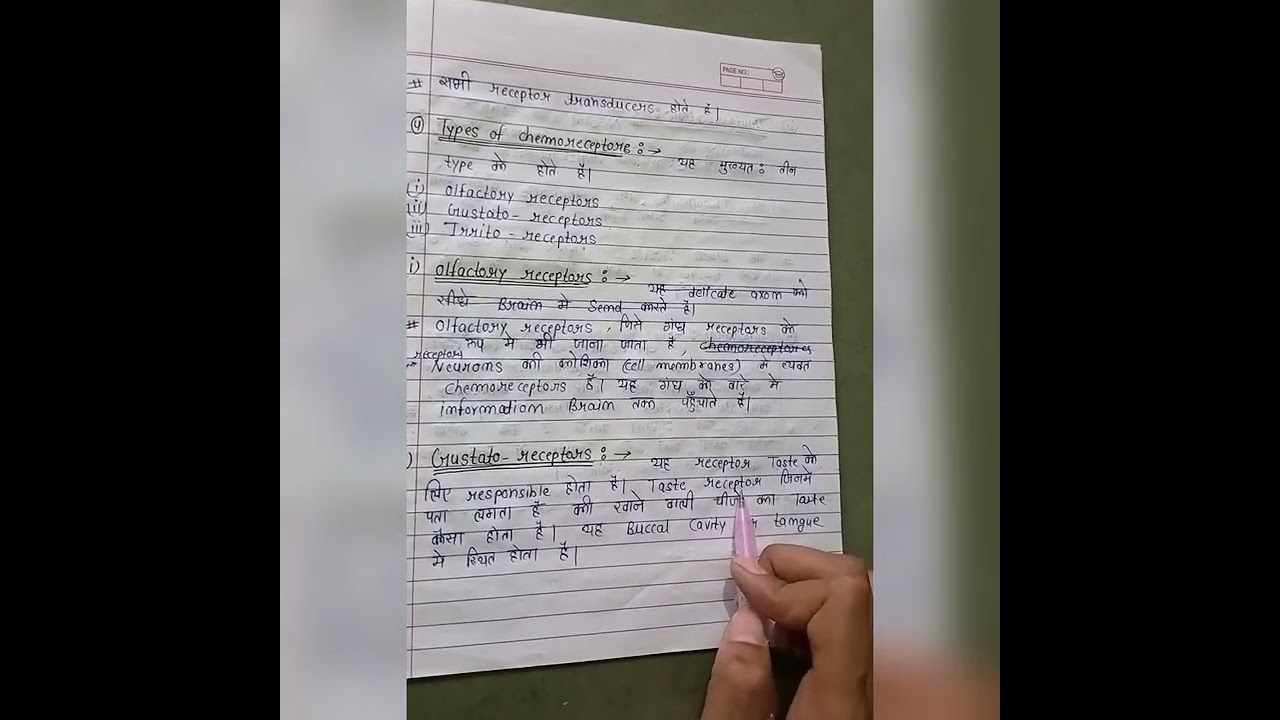 PAGE NO.:
# सभी receptor transducers होते हैं।
(4) Types of chemoreceptors :→ यह मुख्यतः तीन
type के होते हैं।
(i) Olfactory receptors
(ii) Gustato-receptors
(iii) Irrito-receptors
i) Olfactory receptors :→ यह delicate axon को
सीधे Brain मे Send करते है।
# Olfactory receptors, जिसे गंध receptors के
रूप मे भी जाना जाता है, chemoreceptores
receptors
→ Neurons की कोशिका (cell membranes) मे व्यक्त
Chemoreceptors हैं। यह गंध के बारे मे
information Brain तक पहुँचाते हैं।
) Gustato-receptors :→ यह receptor Taste के
लिए responsible होता है। Taste receptor जिनमें
पता लगता है की खाने वाली चीजो का Taste
कैसा होता है। यह Buccal Cavity tangue
मे स्थित होता है।